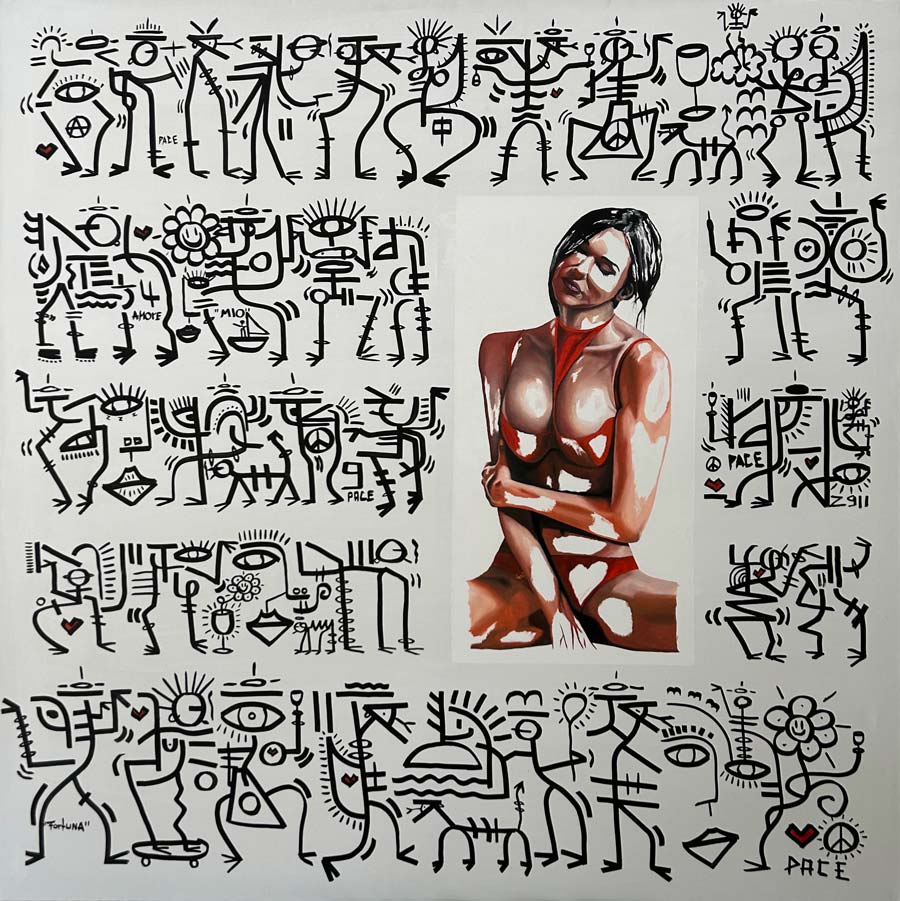 PACE
4
AMORE
"MIO"
zz
9
PACE
PACE
2911
"FORTUNA"
PACE